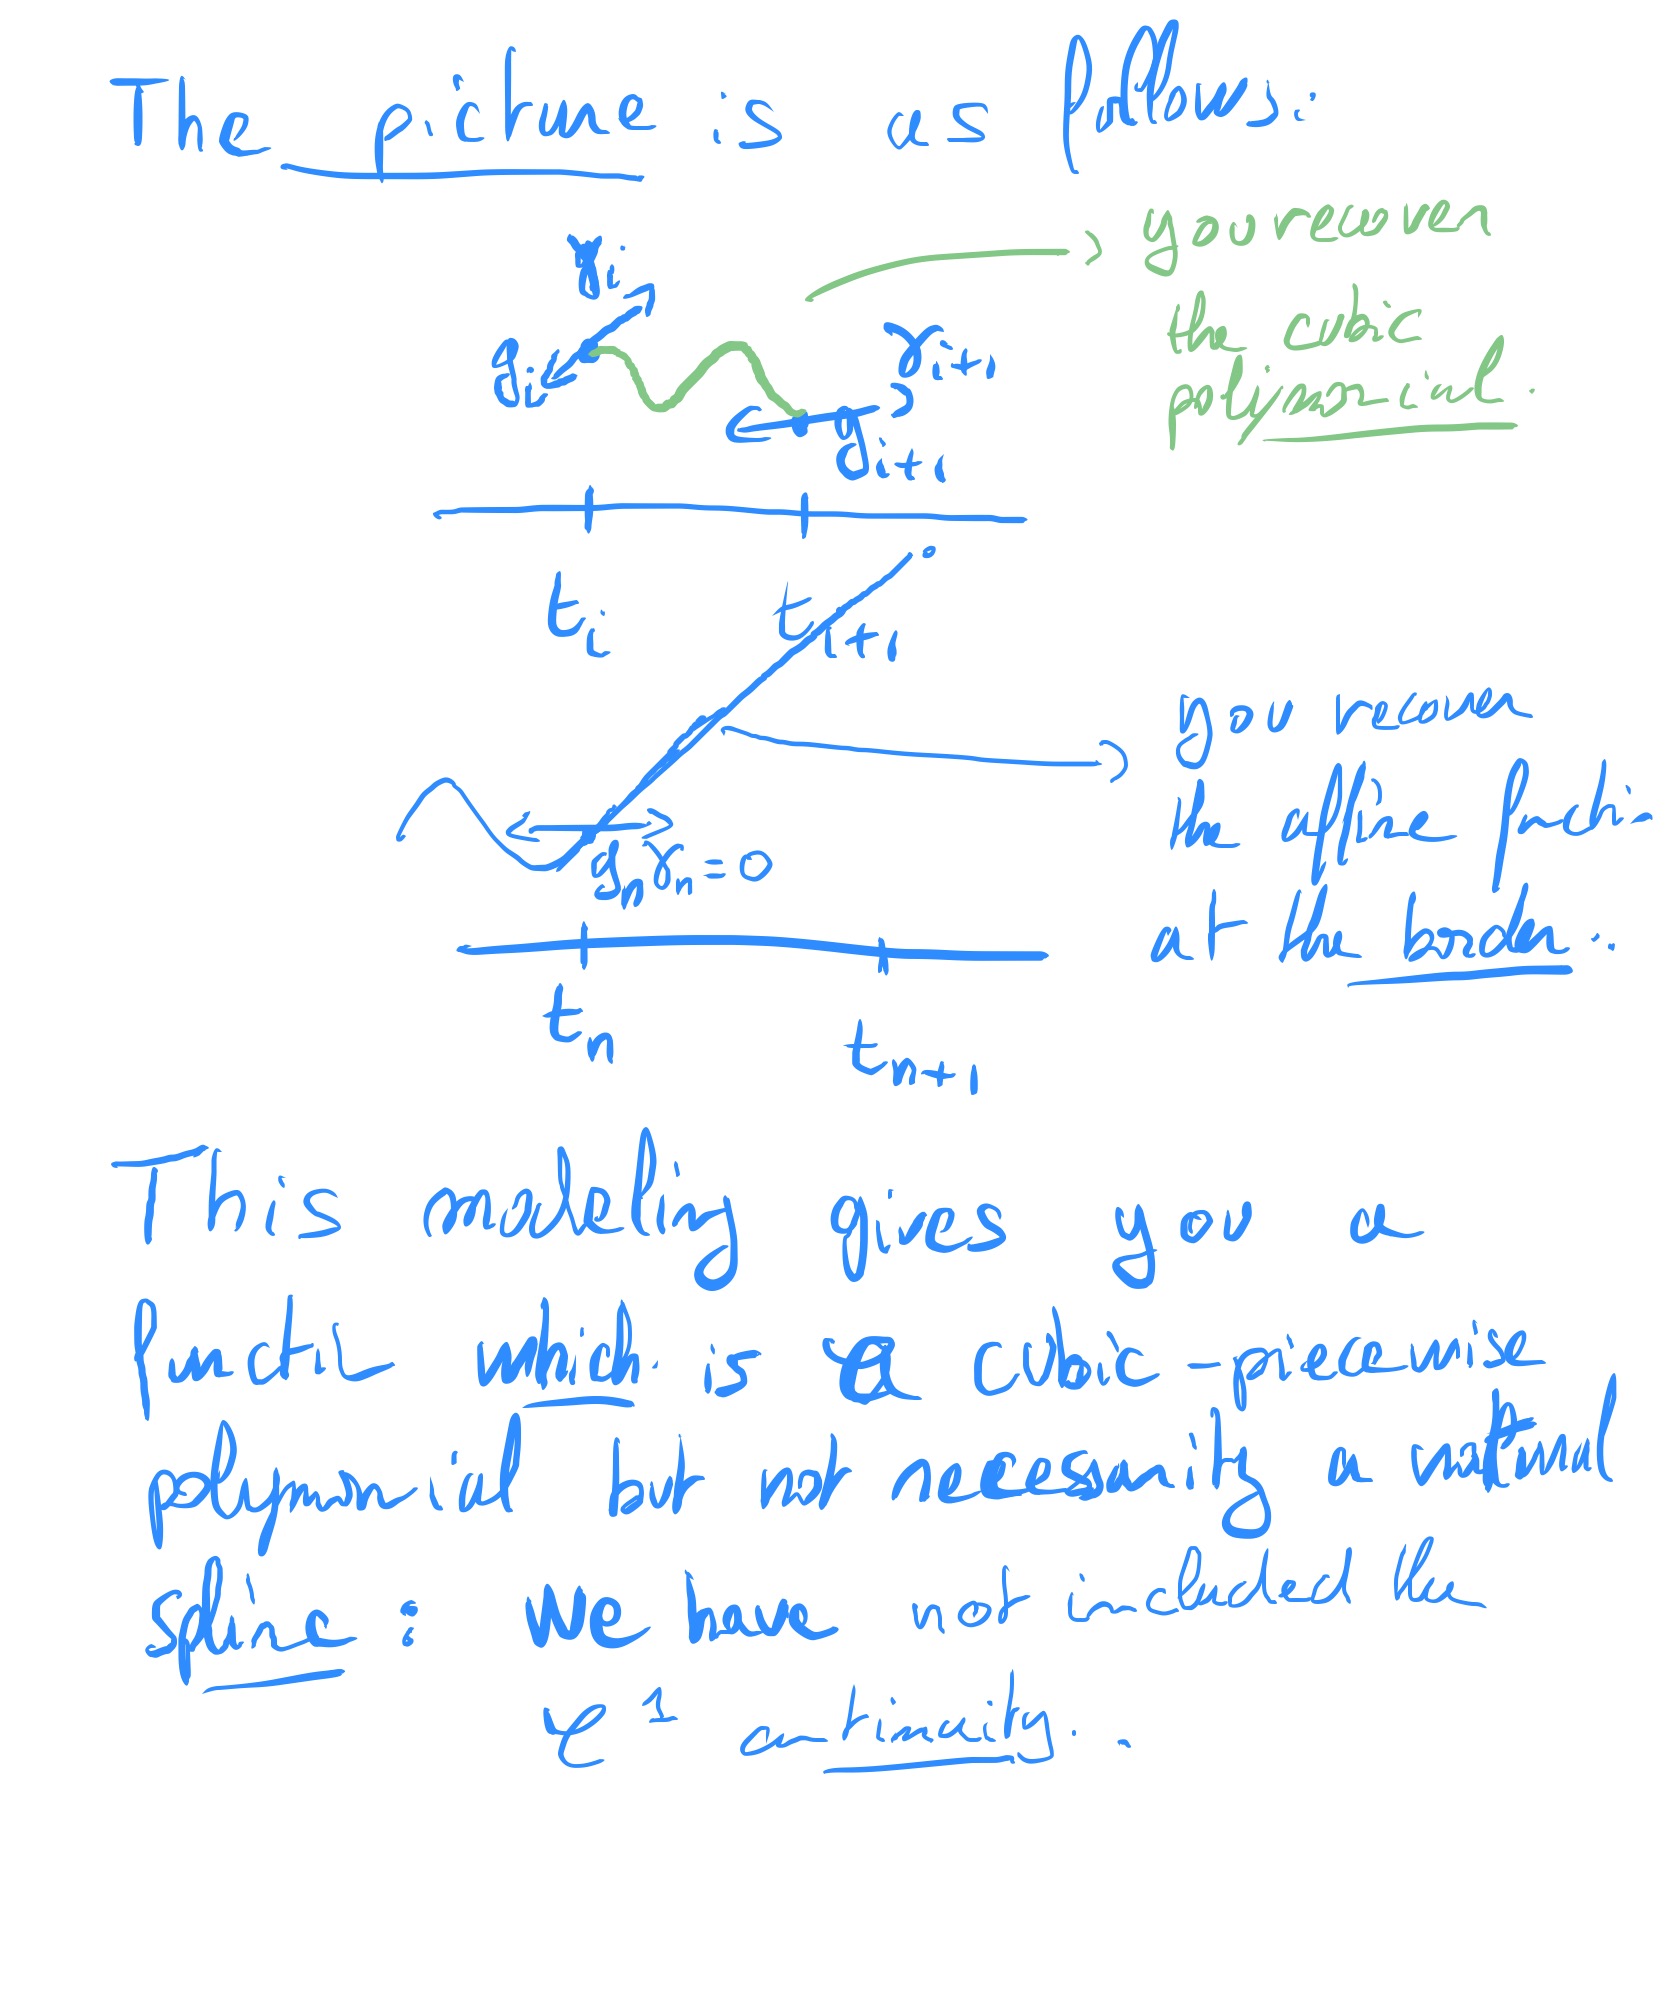 The picture is as follows:
you recover
γi
the cubic
gi
γi+1
polynomial.
gi+1
ti
ti+1
you recover
the affine function
gn γn = 0
at the border..
tn
tn+1
This modeling gives you a
function which is a cubic-piecewise
polynomial but not necessarily a natural
spline: We have not included the
C1 continuity..